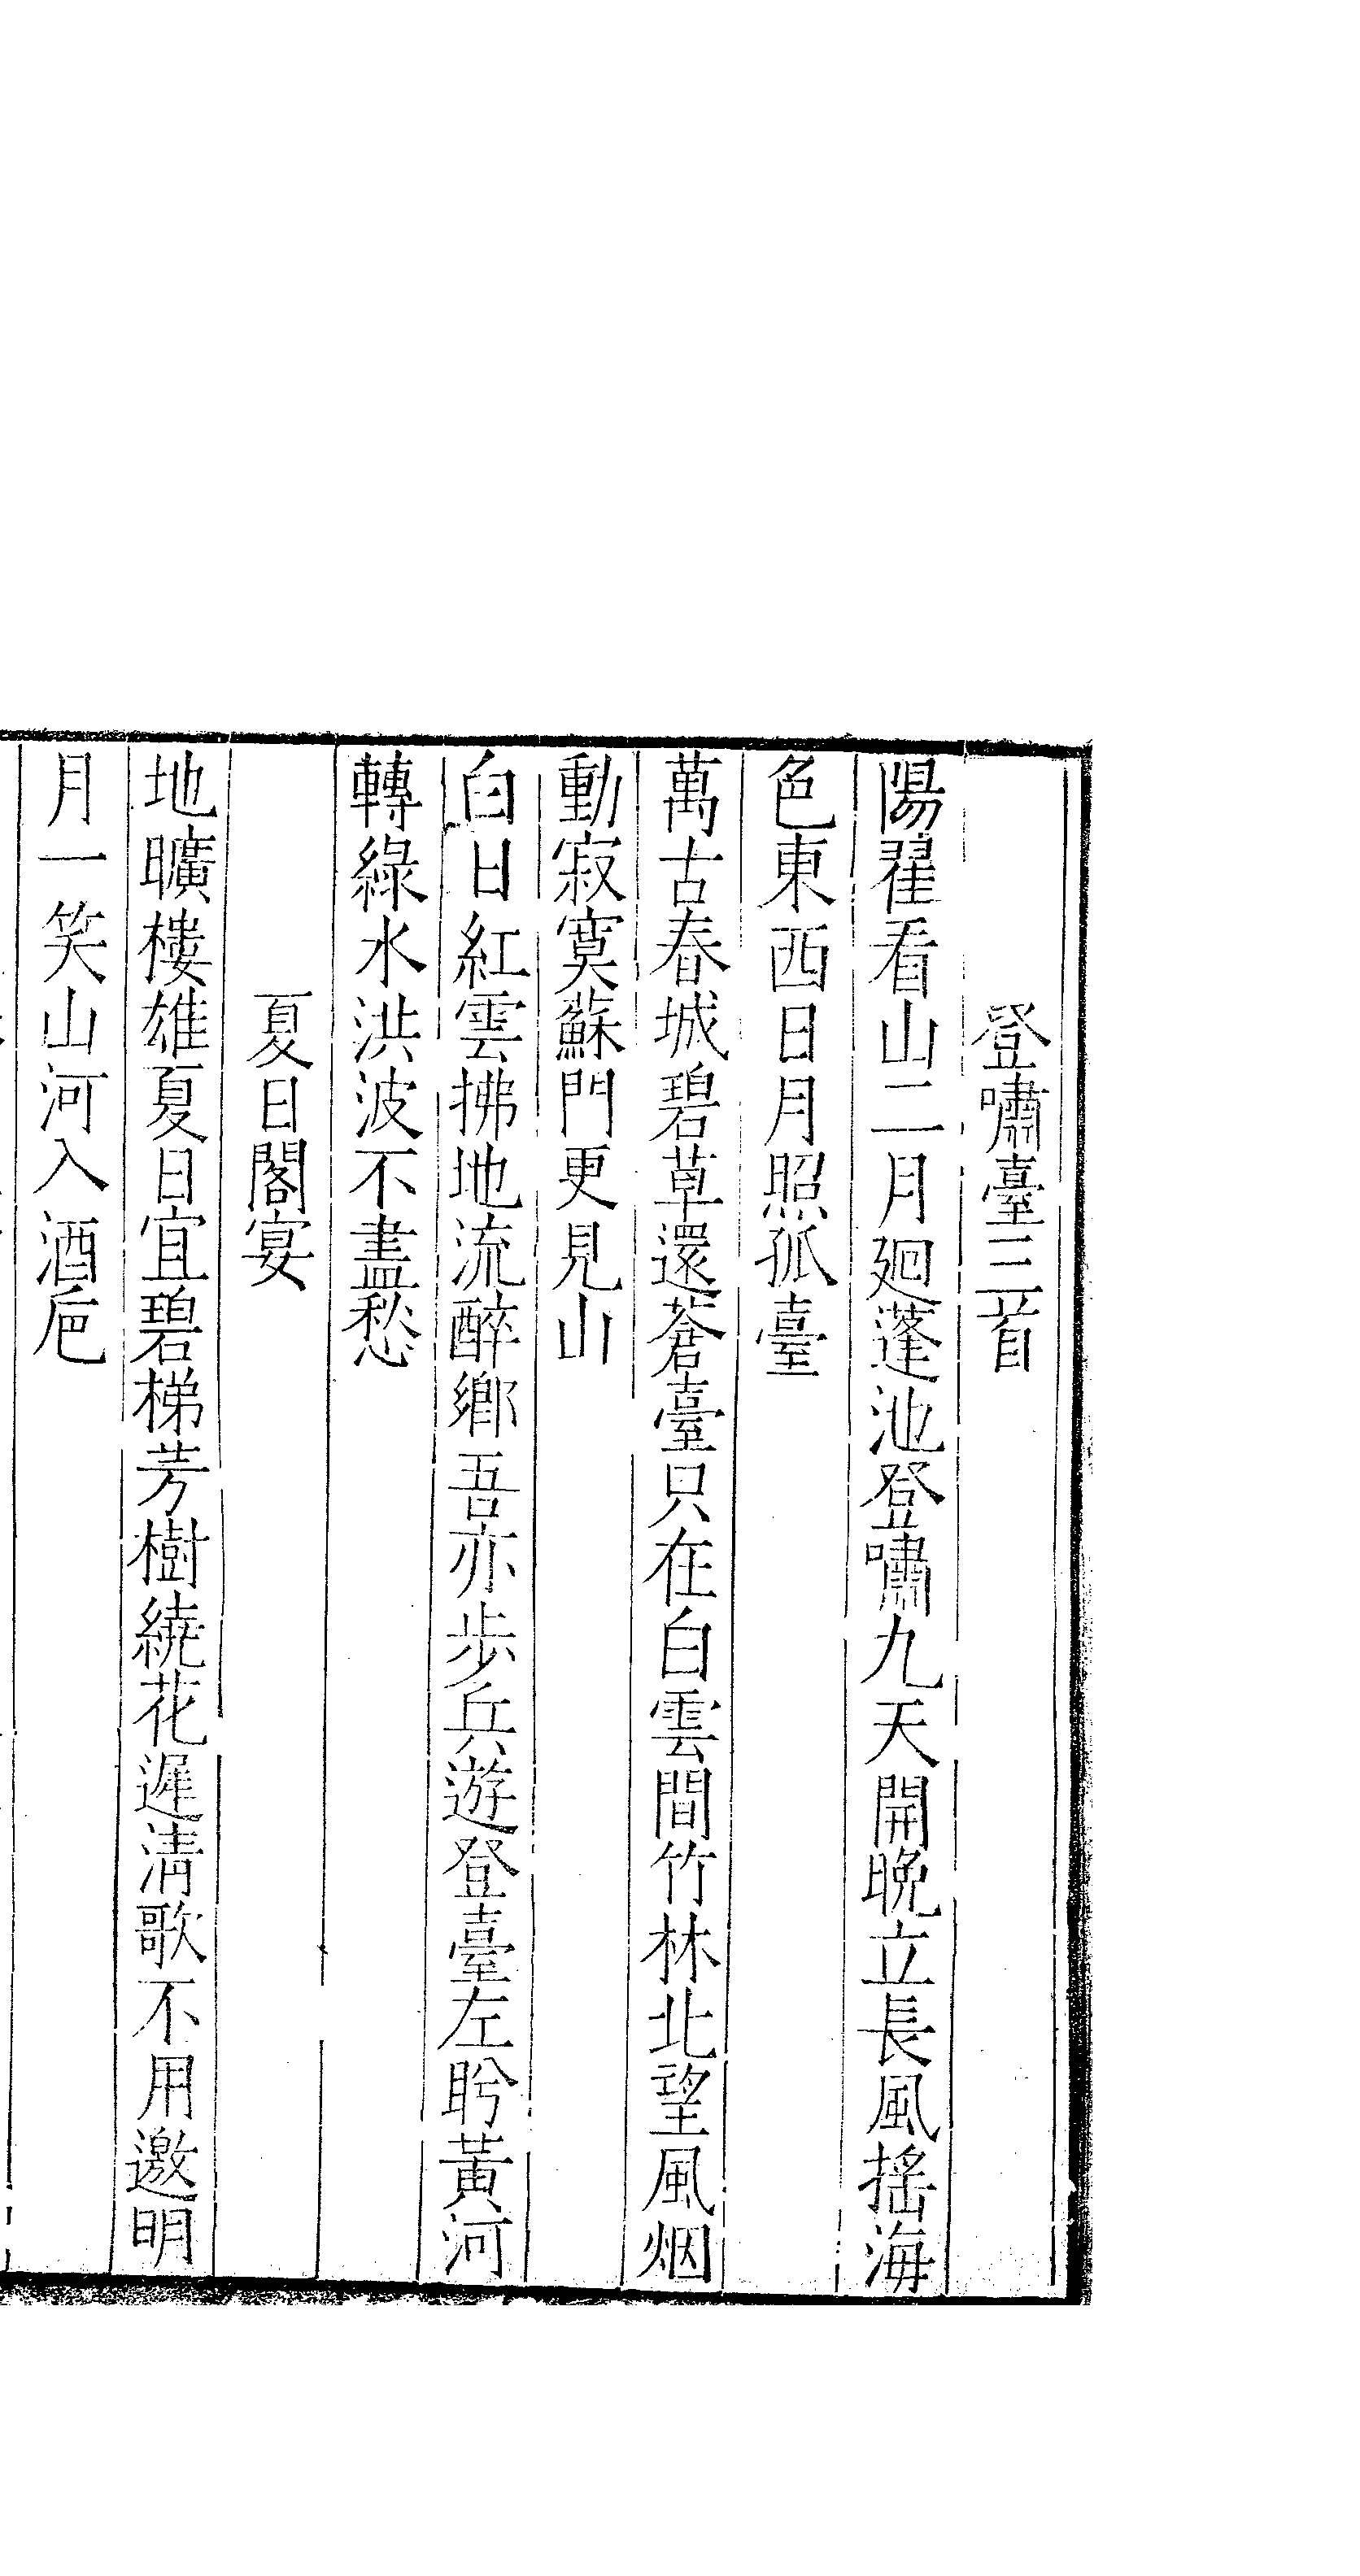 登嘯臺三首
陽翟看山二月廻蓬池登嘯九天開晚立長風揺海
色東西日月照孤臺
萬古春城碧草還蒼臺只在白雲間竹林北望風烟
動寂寞蘇門更見山
白日紅雲拂地流醉鄉吾亦歩兵遊登臺左盻黃河
轉綠水洪波不盡愁
夏日閣宴
地曠樓雄夏日宜碧梯芳樹繞花遲清歌不用邀明
月一笑山河入酒巵